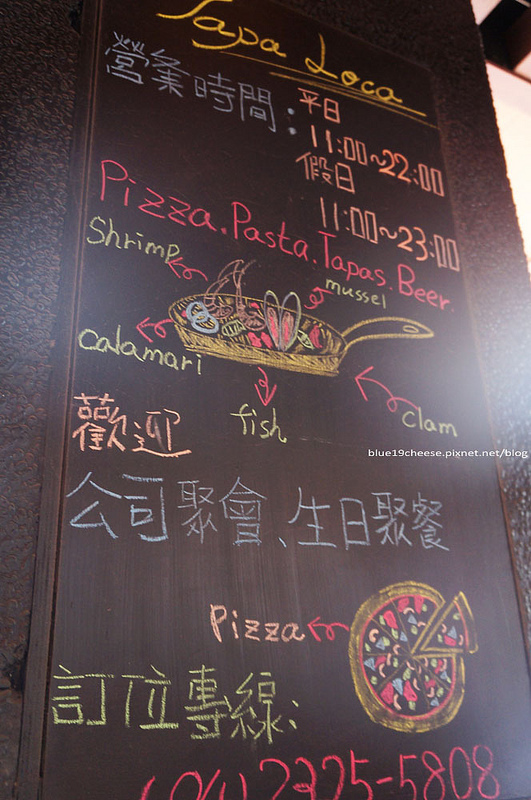 Tapa Loca
營業時間：平日
11:00~22:00
假日
11:00~23:00
Pizza.Pasta.Tapas.Beer.
Shrimp
mussel
calamari
fish
clam
歡迎
blue19cheese.pixnet.net/blog
公司聚會、生日聚餐
Pizza
訂位專線:
(04)2325-5808